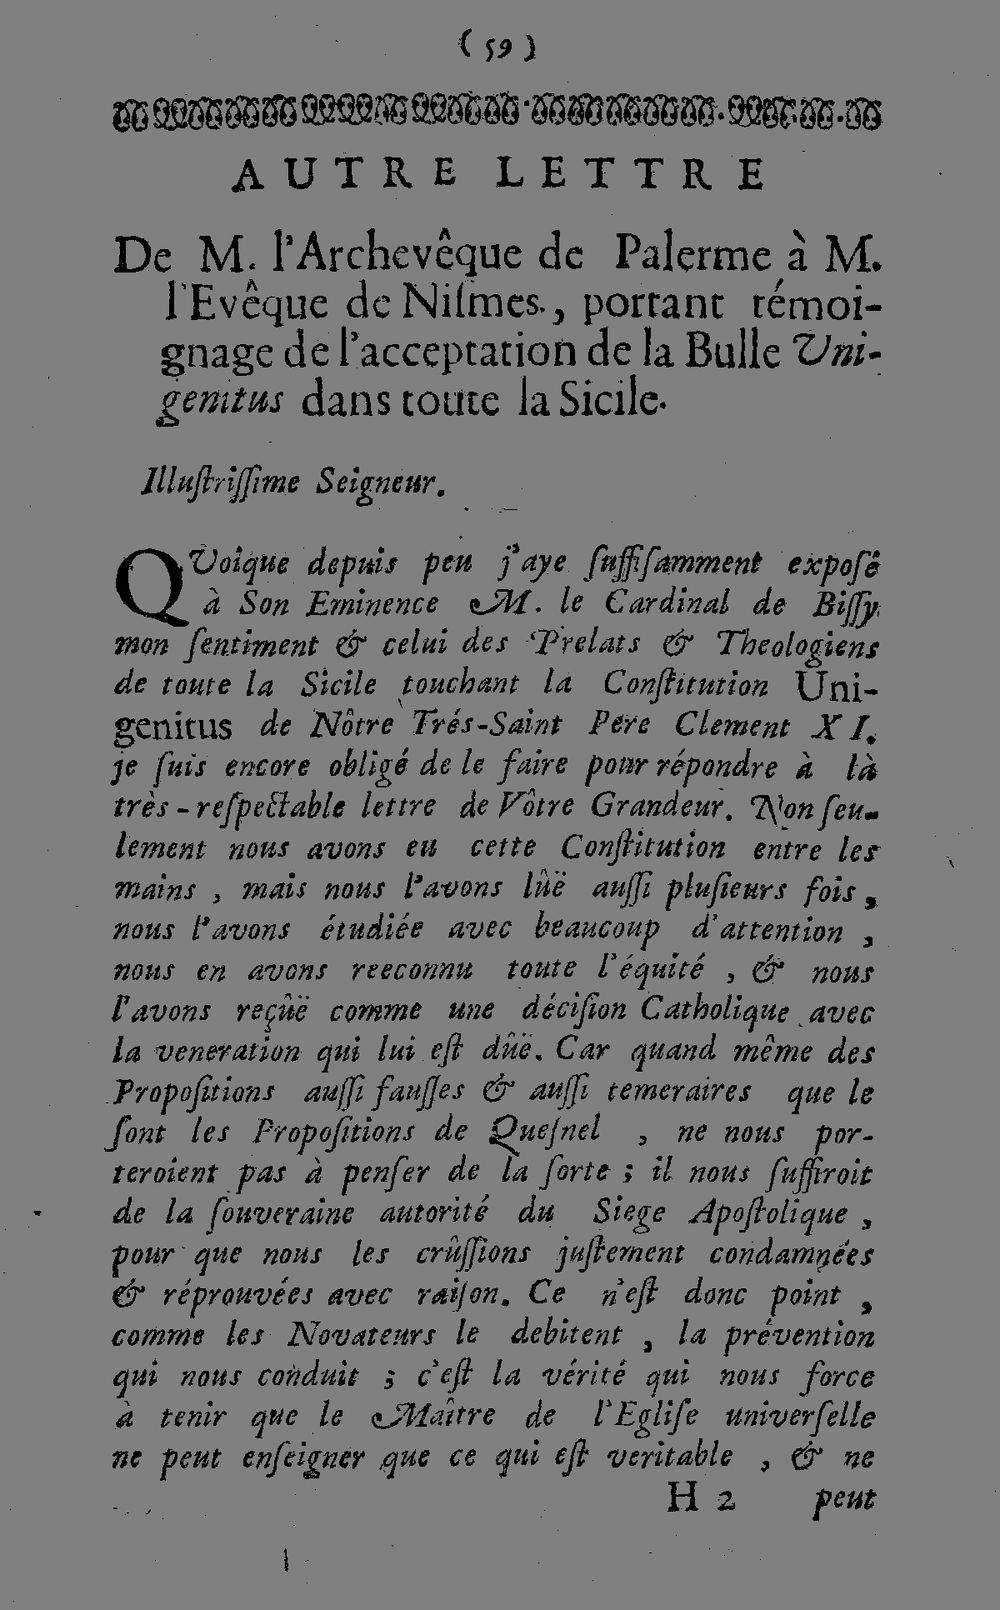 ( 59 )
AUTRE LETTRE
De M. l'Archevêque de Palerme à M.
l'Evêque de Niſmes., portant témoi-
gnage de l'acceptation de la Bulle Uni-
genitus dans toute la Sicile.
Illuſtriſſime Seigneur.
QUoique depuis peu j'aye ſuffiſamment expoſé
à Son Eminence M. le Cardinal de Biſſy
mon ſentiment & celui des Prelats & Theologiens
de toute la Sicile touchant la Conſtitution Uni-
genitus de Nôtre Trés-Saint Pere Clement XI.
je ſuis encore obligé de le faire pour répondre à là
très-reſpectable lettre de Vôtre Grandeur. Non ſeu-
lement nous avons eu cette Conſtitution entre les
mains , mais nous l'avons lûë auſſi pluſieurs fois ,
nous l'avons étudiée avec beaucoup d'attention ,
nous en avons reeconnu toute l'équité , & nous
l'avons reçûë comme une déciſion Catholique avec
la veneration qui lui eſt dûë. Car quand même des
Propoſitions auſſi fauſſes & auſſi temeraires que le
ſont les Propoſitions de Queſnel , ne nous por-
teroient pas à penſer de la ſorte ; il nous ſuffiroit
de la ſouveraine autorité du Siege Apoſtolique ,
pour que nous les crûſſions juſtement condamnées
& réprouvées avec raiſon. Ce n'eſt donc point ,
comme les Novateurs le debitent , la prévention
qui nous conduit ; c'eſt la vérité qui nous force
à tenir que le Maître de l'Egliſe univerſelle
ne peut enſeigner que ce qui eſt veritable , & ne
H 2 peut